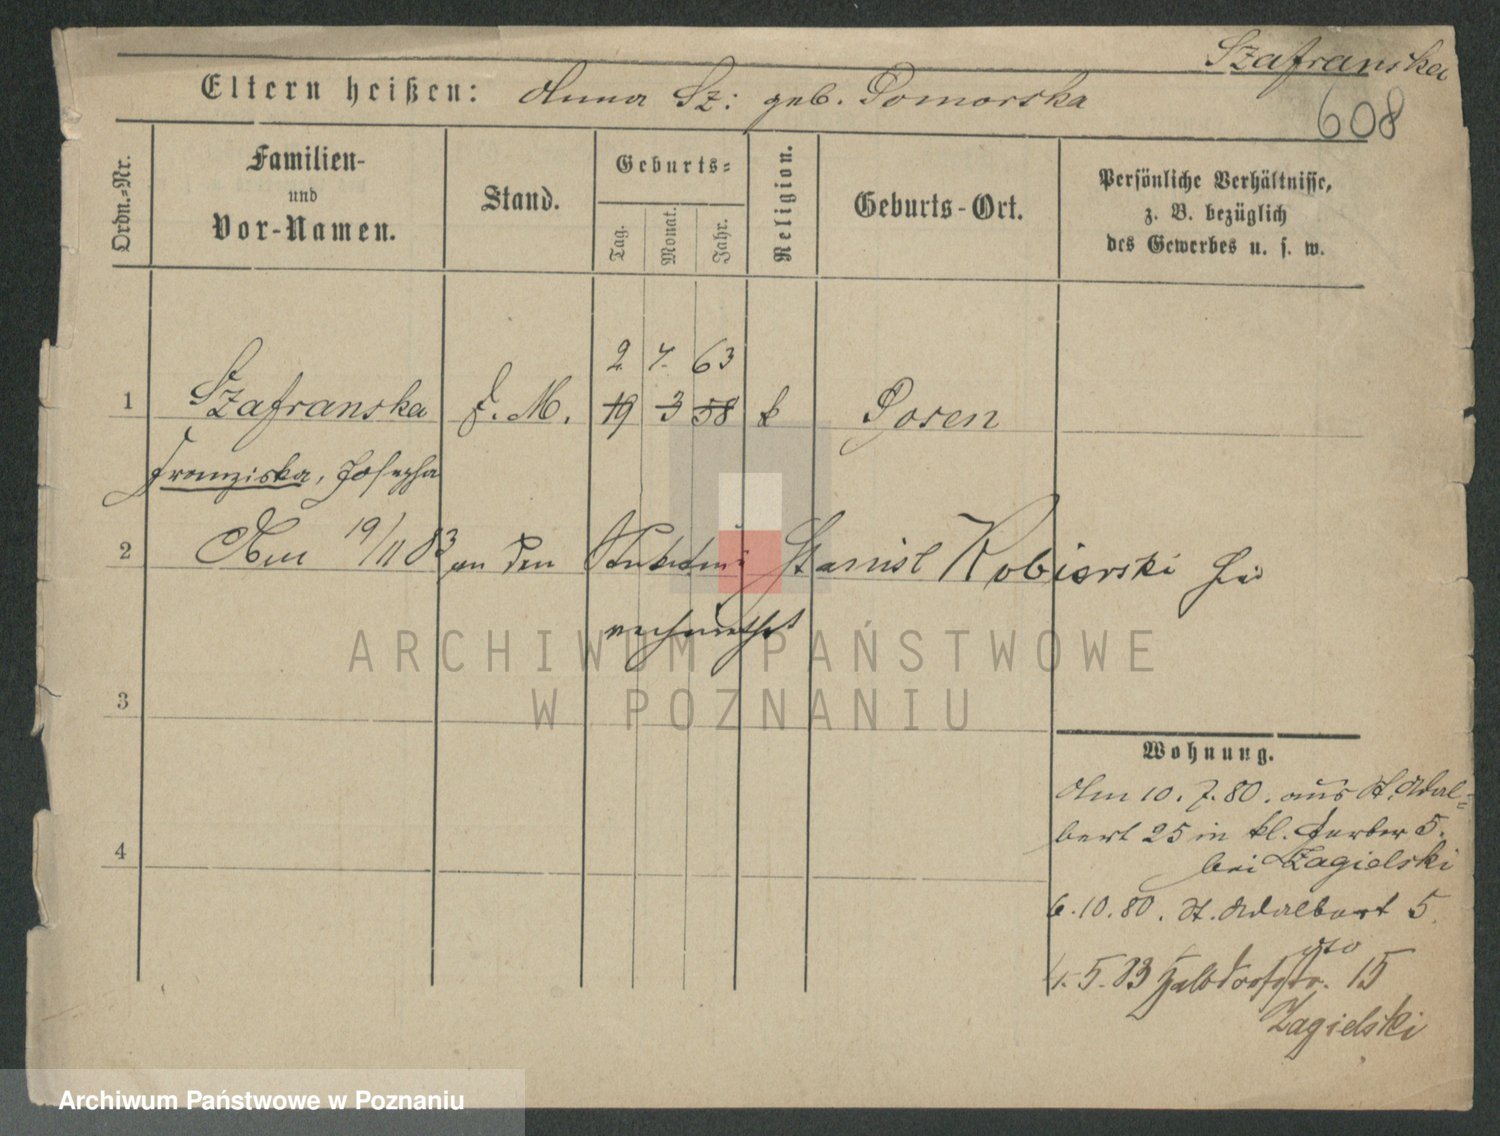 Szafranska
608
Eltern heißen: Anna Sz: geb. Pomorska
Ordn.-Nr.
Familien-
und
Vor-Namen.
Stand.
Geburts-
Tag.
Monat.
Jahr.
Religion.
Geburts-Ort.
Persönliche Verhältnisse,
z. B. bezüglich
des Gewerbes u. s. w.
2 7. 63
1 Szafranska f. M. 19 3 58 k Posen
Franziska, Josepha
2 Am 19/11 83 an den Stanisl Kobierski
verheirathet
3
4
Wohnung.
Am 10. 7. 80. aus St. Adal=
bert 25 in kl. Gerber 5.
bei Zagielski
6.10.80. St. Adalbert 5.
dto
4.5.83 Halbdorfstr. 15
Zagielski
ARCHIWUM PAŃSTWOWE
W POZNANIU
Archiwum Państwowe w Poznaniu